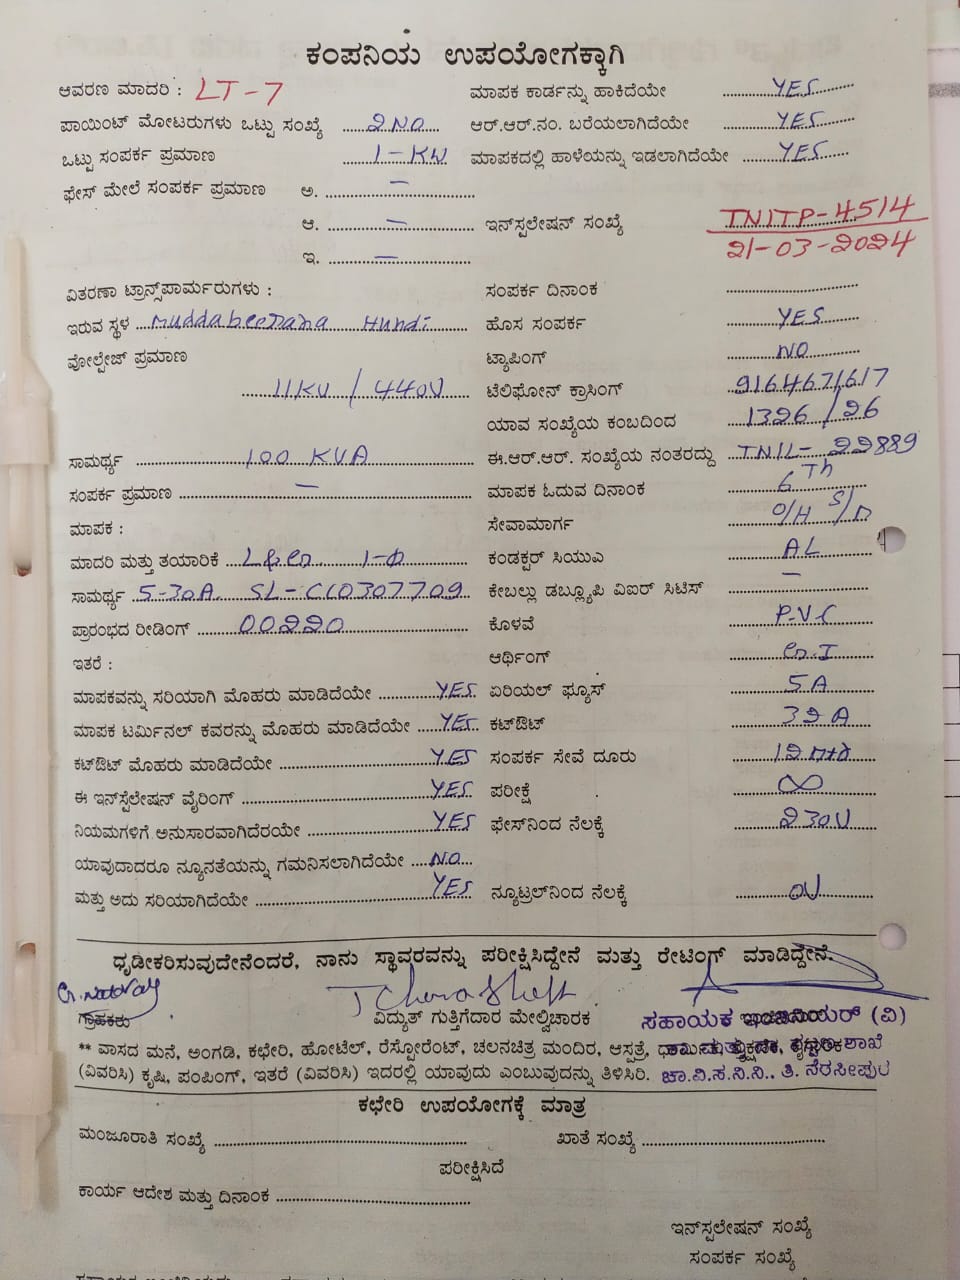 ಕಂಪನಿಯ ಉಪಯೋಗಕ್ಕಾಗಿ
ಆವರಣ ಮಾದರಿ : LT-7 ಮಾಪಕ ಕಾರ್ಡನ್ನು ಹಾಕಿದೆಯೇ YES
ಪಾಯಿಂಟ್ ಮೋಟರುಗಳು ಒಟ್ಟು ಸಂಖ್ಯೆ 2NO ಆರ್.ಆರ್.ನಂ. ಬರೆಯಲಾಗಿದೆಯೇ YES
ಒಟ್ಟು ಸಂಪರ್ಕ ಪ್ರಮಾಣ 1-KW ಮಾಪಕದಲ್ಲಿ ಹಾಳೆಯನ್ನು ಇಡಲಾಗಿದೆಯೇ YES
ಫೇಸ್ ಮೇಲೆ ಸಂಪರ್ಕ ಪ್ರಮಾಣ ಅ. —
ಆ. — ಇನ್‌ಸ್ಟಲೇಷನ್ ಸಂಖ್ಯೆ TNITP-4514
21-03-2024
ಇ. —
ವಿತರಣಾ ಟ್ರಾನ್ಸ್‌ಪಾರ್ಮರುಗಳು : ಸಂಪರ್ಕ ದಿನಾಂಕ
ಇರುವ ಸ್ಥಳ Muddabeerana Hundi ಹೊಸ ಸಂಪರ್ಕ YES
ವೋಲ್ಟೇಜ್ ಪ್ರಮಾಣ ಟ್ಯಾಪಿಂಗ್ NO
11KV / 440V ಟೆಲಿಫೋನ್ ಕ್ರಾಸಿಂಗ್ 9164671617
ಯಾವ ಸಂಖ್ಯೆಯ ಕಂಬದಿಂದ 1326/26
ಸಾಮರ್ಥ್ಯ 100 KVA ಈ.ಆರ್.ಆರ್. ಸಂಖ್ಯೆಯ ನಂತರದ್ದು TNIL-22889
ಸಂಪರ್ಕ ಪ್ರಮಾಣ — ಮಾಪಕ ಓದುವ ದಿನಾಂಕ 6Th
ಮಾಪಕ : ಸೇವಾಮಾರ್ಗ O/H S/D
ಮಾದರಿ ಮತ್ತು ತಯಾರಿಕೆ 1-Φ ಕಂಡಕ್ಟರ್ ಸಿಯುಎ AL
ಸಾಮರ್ಥ್ಯ 5-30A SL-C10307709 ಕೇಬಲ್ಲು ಡಬ್ಲ್ಯೂಪಿ ವಿಐರ್ ಸಿಟಿಸ್ —
ಪ್ರಾರಂಭದ ರೀಡಿಂಗ್ 00220 ಕೊಳವೆ P.V.C
ಇತರೆ : ಆರ್ಥಿಂಗ್ G.I
ಮಾಪಕವನ್ನು ಸರಿಯಾಗಿ ಮೊಹರು ಮಾಡಿದೆಯೇ YES ಏರಿಯಲ್ ಫ್ಯೂಸ್ 5A
ಮಾಪಕ ಟರ್ಮಿನಲ್ ಕವರನ್ನು ಮೊಹರು ಮಾಡಿದೆಯೇ YES ಕಟ್‌ಔಟ್ 32A
ಕಟ್‌ಔಟ್ ಮೊಹರು ಮಾಡಿದೆಯೇ YES ಸಂಪರ್ಕ ಸೇವೆ ದೂರು
ಈ ಇನ್‌ಸ್ಟೆಲೇಷನ್ ವೈರಿಂಗ್ YES ಪರೀಕ್ಷೆ ∞
ನಿಯಮಗಳಿಗೆ ಅನುಸಾರವಾಗಿದೆರಯೇ YES ಫೇಸ್‌ನಿಂದ ನೆಲಕ್ಕೆ 230V
ಯಾವುದಾದರೂ ನ್ಯೂನತೆಯನ್ನು ಗಮನಿಸಲಾಗಿದೆಯೇ NO
ಮತ್ತು ಅದು ಸರಿಯಾಗಿದೆಯೇ YES ನ್ಯೂಟ್ರಲ್‌ನಿಂದ ನೆಲಕ್ಕೆ 0V
ಧೃಡೀಕರಿಸುವುದೇನೆಂದರೆ, ನಾನು ಸ್ಥಾವರವನ್ನು ಪರೀಕ್ಷಿಸಿದ್ದೇನೆ ಮತ್ತು ರೇಟಿಂಗ್ ಮಾಡಿದ್ದೇನೆ.
ಗ್ರಾಹಕರು ವಿದ್ಯುತ್ ಗುತ್ತಿಗೆದಾರ ಮೇಲ್ವಿಚಾರಕ ಸಹಾಯಕ ಇಂಜಿನಿಯರ್ (ವಿ)
** ವಾಸದ ಮನೆ, ಅಂಗಡಿ, ಕಛೇರಿ, ಹೋಟೆಲ್, ರೆಸ್ಟೋರೆಂಟ್, ಚಲನಚಿತ್ರ ಮಂದಿರ, ಆಸ್ಪತ್ರೆ, ಶಾಖೆ
(ವಿವರಿಸಿ) ಕೃಷಿ, ಪಂಪಿಂಗ್, ಇತರೆ (ವಿವರಿಸಿ) ಇದರಲ್ಲಿ ಯಾವುದು ಎಂಬುವುದನ್ನು ತಿಳಿಸಿರಿ. ಚಾ.ವಿ.ಸ.ನಿ.ನಿ., ತಿ. ನರಸೀಪುರ
ಕಛೇರಿ ಉಪಯೋಗಕ್ಕೆ ಮಾತ್ರ
ಮಂಜೂರಾತಿ ಸಂಖ್ಯೆ ಖಾತೆ ಸಂಖ್ಯೆ
ಪರೀಕ್ಷಿಸಿದೆ
ಕಾರ್ಯ ಆದೇಶ ಮತ್ತು ದಿನಾಂಕ
ಇನ್‌ಸ್ಪಲೇಷನ್ ಸಂಖ್ಯೆ
ಸಂಪರ್ಕ ಸಂಖ್ಯೆ